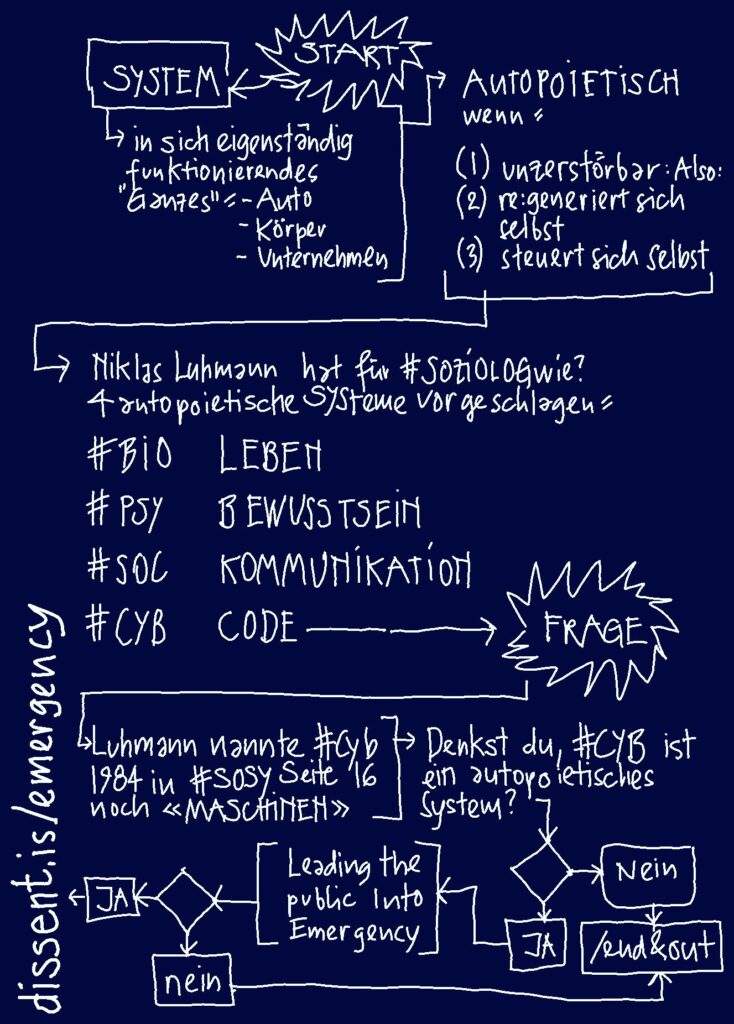 START
SYSTEM
in sich eigenständig
funktionierendes
"Ganzes" = - Auto
- Körper
- Unternehmen
AUTOPOIETISCH
wenn =
(1) unzerstörbar: Also:
(2) re:generiert sich
selbst
(3) steuert sich selbst
Niklas Luhmann hat für #SOZIOLOGwie?
4 autopoietische SYSteme vorgeschlagen =
#BIO LEBEN
#PSY BEWUSSTSEIN
#SOC KOMMUNIKATION
#CYB CODE
FRAGE
Luhmann nannte #Cyb
1984 in #SOSY Seite 16
noch «MASCHINEN»
Denkst du, #CYB ist
ein autopoietisches
System?
Nein
JA
/end&out
Leading the
public Into
Emergency
JA
nein
dissent.is/emergency